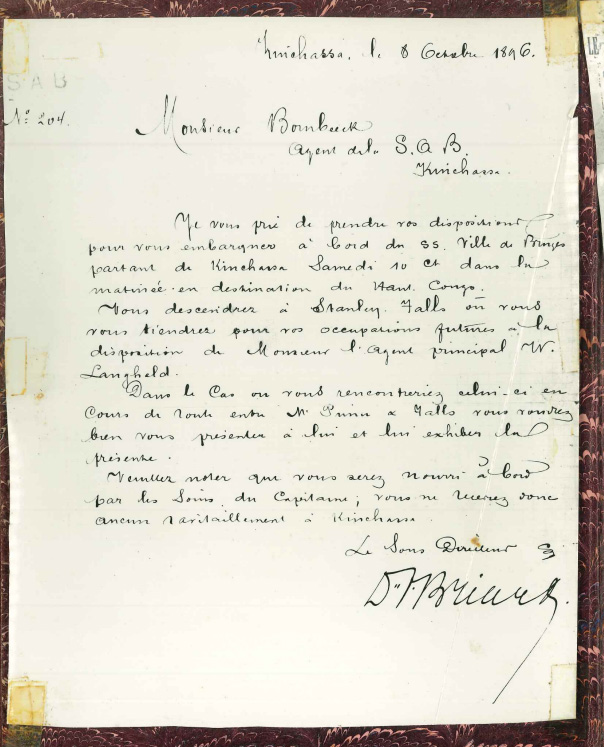 Kinchassa, le 8 Octobre 1896.
SAB
N° 204.
Monsieur Bombeeck
Agent de la S.A.B.
Kinchassa.
Je vous prie de prendre vos dispositions
pour vous embarquer à bord du SS. Ville de Bruges
partant de Kinchassa Samedi 10 ct dans la
matinée en destination du Haut Congo.
Vous descendrez à Stanley Falls où vous
vous tiendrez pour vos occupations futures à la
disposition de Monsieur l'Agent principal W.
Langheld.
Dans le cas où vous rencontreriez celui-ci en
cours de route entre & Falls vous voudrez
bien vous présenter à lui et lui exhiber la
présente.
Veuillez noter que vous serez nourri à bord
par les Soins du Capitaine; vous ne recevrez donc
aucun ravitaillement à Kinchassa.
Le Sous Directeur
Dr J. Briart.